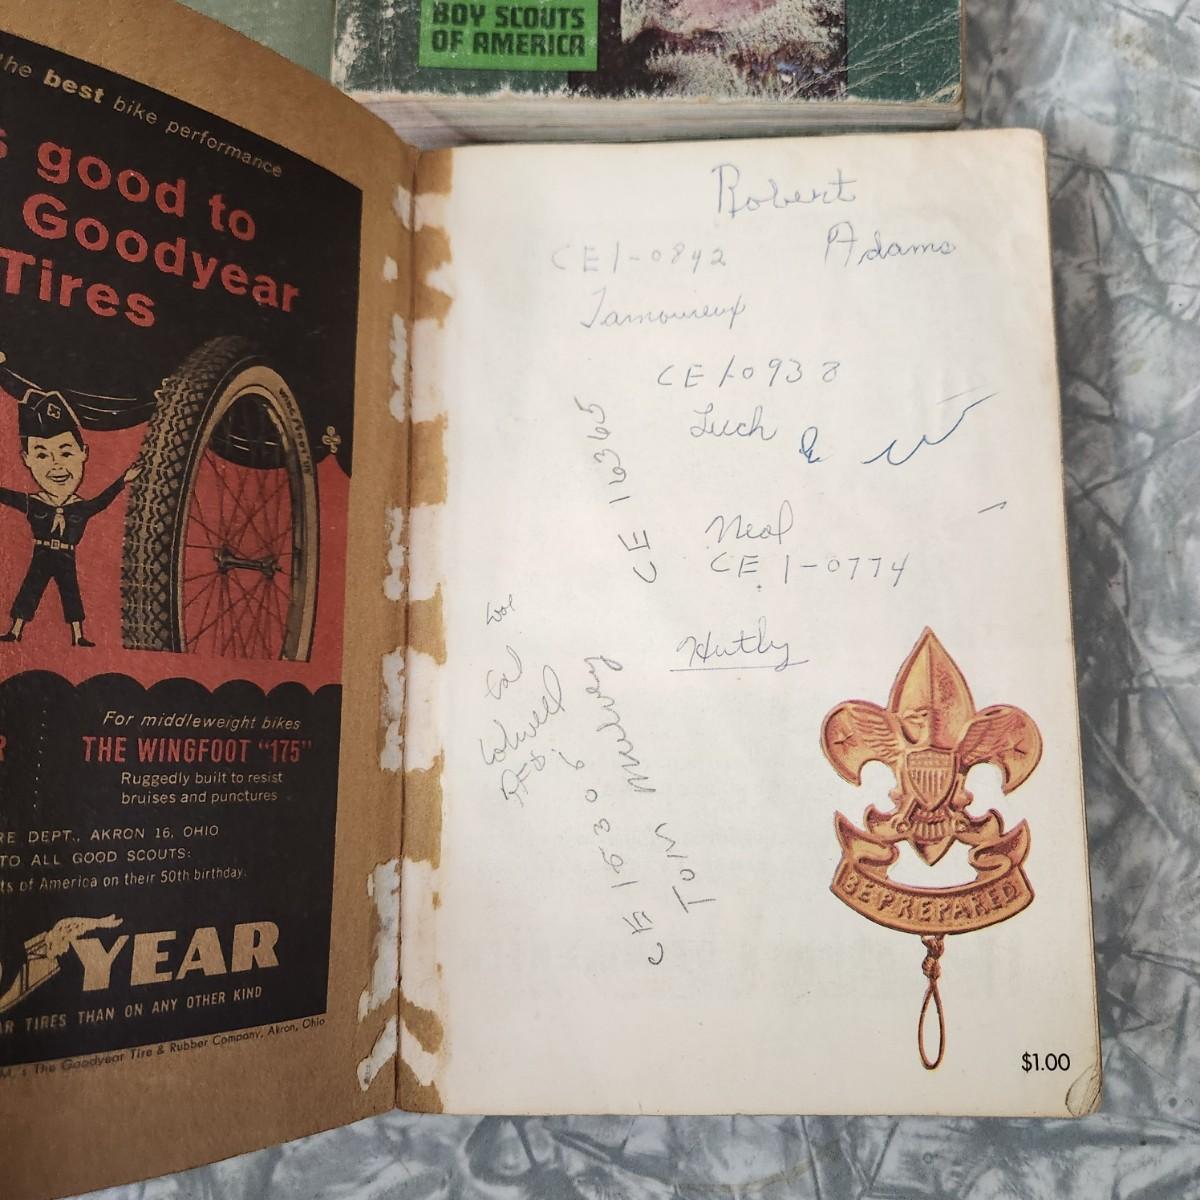 BOY SCOUTS
OF AMERICA
the best bike performance
good to
Goodyear
Tires
For middleweight bikes
THE WINGFOOT "175"
Ruggedly built to resist
bruises and punctures
DEPT., AKRON 16, OHIO
TO ALL GOOD SCOUTS:
of America on their 50th birthday.
YEAR
TIRES THAN ON ANY OTHER KIND
The Goodyear Tire & Rubber Company, Akron, Ohio
Robert
Adams
CE1-0842
CE1-0938
Luch
CE 16365
Neal
CE 1-0774
Hutly
CE 1 6306
TOM
BE PREPARED
$1.00